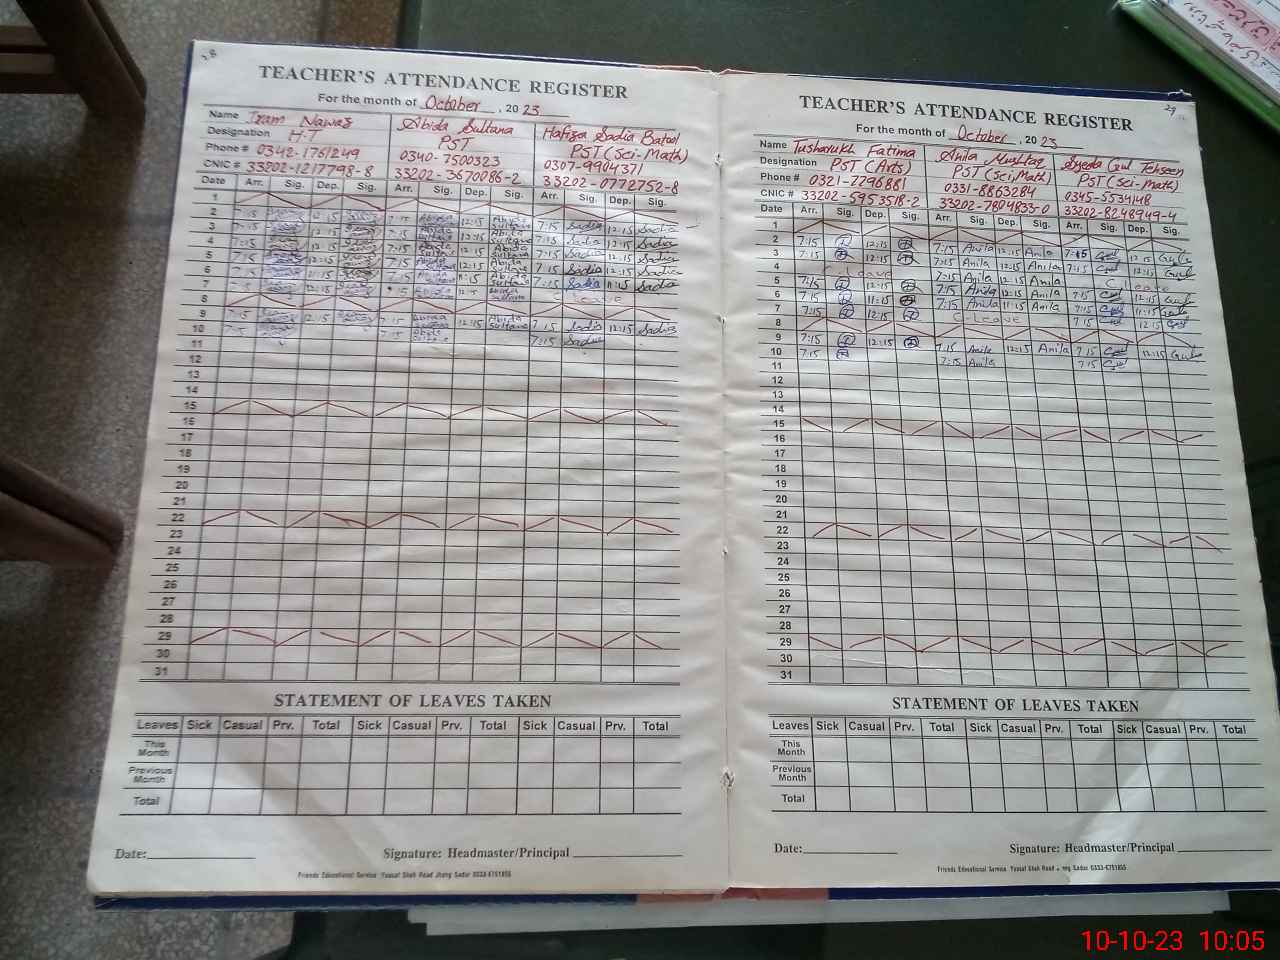 28
TEACHER'S ATTENDANCE REGISTER
For the month of October, 2023
Name Iram Nawaz Abida Sultana Hafiza Sadia Batool
Designation H.T PST PST (Sci-Math)
Phone # 0342-1761249 0340-7500323 0307-9904371
CNIC # 33202-1217798-8 33202-3670086-2 33202-0772752-8
Date Arr. Sig. Dep. Sig. Arr. Sig. Dep. Sig. Arr. Sig. Dep. Sig.
1
2 7:15 12:15 7:15 Abida Sultana 12:15 Abida Sultana 7:15 Sadia 12:15 Sadia
3 7:15 12:15 7:15 Abida Sultana 12:15 Abida Sultana 7:15 Sadia 12:15 Sadia
4 7:15 12:15 7:15 Abida Sultana 12:15 Abida Sultana 7:15 Sadia 12:15 Sadia
5 7:15 12:15 7:15 Abida Sultana 12:15 Abida Sultana 7:15 Sadia 12:15 Sadia
6 7:15 11:15 7:15 Abida Sultana 11:15 Abida Sultana 7:15 Sadia 11:15 Sadia
7 7:15 12:15 Abida Sultana Abida Sultana C-Leave
8
9 7:15 12:15 7:15 Abida Sultana 12:15 Abida Sultana 7:15 Sadia 12:15 Sadia
10 7:15 7:15 Abida Sultana 7:15 Sadia
11
12
13
14
15
16
17
18
19
20
21
22
23
24
25
26
27
28
29
30
31
STATEMENT OF LEAVES TAKEN
Leaves Sick Casual Prv. Total Sick Casual Prv. Total Sick Casual Prv. Total
This Month
Previous Month
Total
Date: Signature: Headmaster/Principal
Friends Educational Service Yousaf Shah Road Jhang Sadar 0333-6751855
29
TEACHER'S ATTENDANCE REGISTER
For the month of October, 2023
Name Tusharukh Fatima Anila Mushtaq Syeda Gul Tehseen
Designation PST (Arts) PST (Sci, Math) PST (Sci-Math)
Phone # 0321-7296881 0331-8863284 0345-5534148
CNIC # 33202-5953518-2 33202-7804833-0 33202-8248949-4
Date Arr. Sig. Dep. Sig. Arr. Sig. Dep. Sig. Arr. Sig. Dep. Sig.
1
2 7:15 12:15 7:15 Anila 12:15 Anila 7:15 Gul 12:15 Gul
3 7:15 12:15 7:15 Anila 12:15 Anila 7:15 Gul 12:15 Gul
4 C-Leave 7:15 Anila 12:15 Anila C-Leave
5 7:15 12:15 7:15 Anila 12:15 Anila 7:15 Gul 12:15 Gul
6 7:15 11:15 7:15 Anila 11:15 Anila 7:15 Gul 11:15 Gul
7 7:15 12:15 C-Leave 7:15 Gul 12:15 Gul
8
9 7:15 12:15 7:15 Anila 12:15 Anila 7:15 Gul 12:15 Gul
10 7:15 7:15 Anila 7:15 Gul
11
12
13
14
15
16
17
18
19
20
21
22
23
24
25
26
27
28
29
30
31
STATEMENT OF LEAVES TAKEN
Leaves Sick Casual Prv. Total Sick Casual Prv. Total Sick Casual Prv. Total
This Month
Previous Month
Total
Date: Signature: Headmaster/Principal
Friends Educational Service Yousaf Shah Road 0333-6751855
10-10-23 10:05